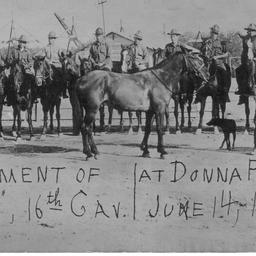 MENT OF AT DONNA
", 16th CAV. JUNE 14, 1